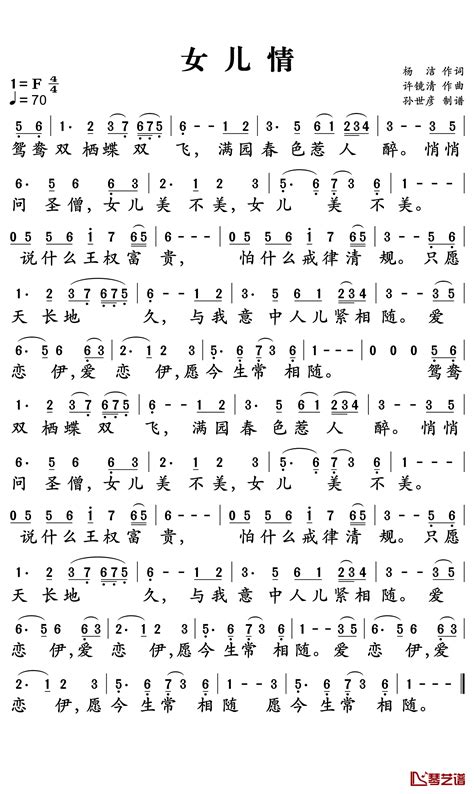 女儿情
1=F 4/4
♩=70
杨 洁 作词
许镜清 作曲
孙世彦 制谱
5 6 | 1· 2 3 7 6 7 5 | 6 - - 1 2 | 3· 5 6 1 2 3 4 | 3 - - 3 5 |
鸳鸯双栖蝶双飞，满园春色惹人醉。悄悄
6· 5 6 6 3 | 2· 1 2 3 - | 5· 6 7 3 6 | 1 - - - |
问圣僧，女儿美不美，女儿 美 不 美。
0 5 5 6 i 7 6 5 | 6 - - - | 0 5 5 6 i 7 6 5 | 3 - - 3 5 |
说什么王权富 贵， 怕什么戒律清 规。只愿
1· 2 3 7 6 7 5 | 6 - - 1 2 | 3· 5 5 6 1 2 3 4 | 3 - - 3 5 |
天长地 久，与我意 中人儿紧相随。爱
6· 5 6 6 3 | 2· 1 2 3 | 5· 6 7 3 6 | 1 - - - | 0 0 0 5 6 |
恋 伊，爱 恋 伊，愿今生常 相随。 鸳鸯
1· 2 3 7 6 7 5 | 6 - - 1 2 | 3· 5 6 1 2 3 4 | 3 - - 3 5 |
双栖蝶 双 飞，满园春色惹人 醉。悄悄
6· 5 6 6 3 | 2· 1 2 3 - | 5· 6 7 3 6 | 1 - - - |
问圣僧，女儿美不美，女儿 美 不 美。
0 5 5 6 i 7 6 5 | 6 - - - | 0 5 5 6 i 7 6 5 | 3 - - 3 5 |
说什么王权富 贵， 怕什么戒律清 规。只愿
1· 2 3 7 6 7 5 | 6 - - 1 2 | 3· 5 5 6 1 2 3 4 | 3 - - 3 5 |
天长地 久，与我意 中人儿紧相随。爱
6· 5 6 6 3 | 2· 1 2 3 | 5· 6 7 3 6 | 1 - - 3 5 | 6· 5 6 6 3 |
恋 伊，爱 恋 伊，愿今生常 相随。爱恋 伊，爱
2· 1 2 3 | 5· 6 7 3 6 | 2· 1 2 3 | 5· 6 7 3 6 | 1 - - - ||
恋 伊，愿今 生常 相 随 愿今生常 相 随。
琴艺谱